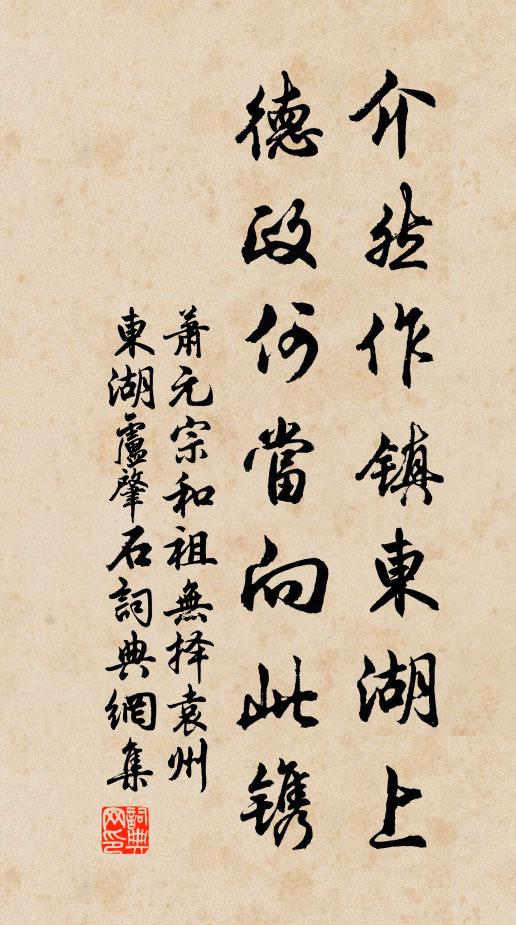 介然作镇東湖上
德政何當向此镌
萧元宗和祖無择袁州
東湖盧肇石詞典網集
詞典网印